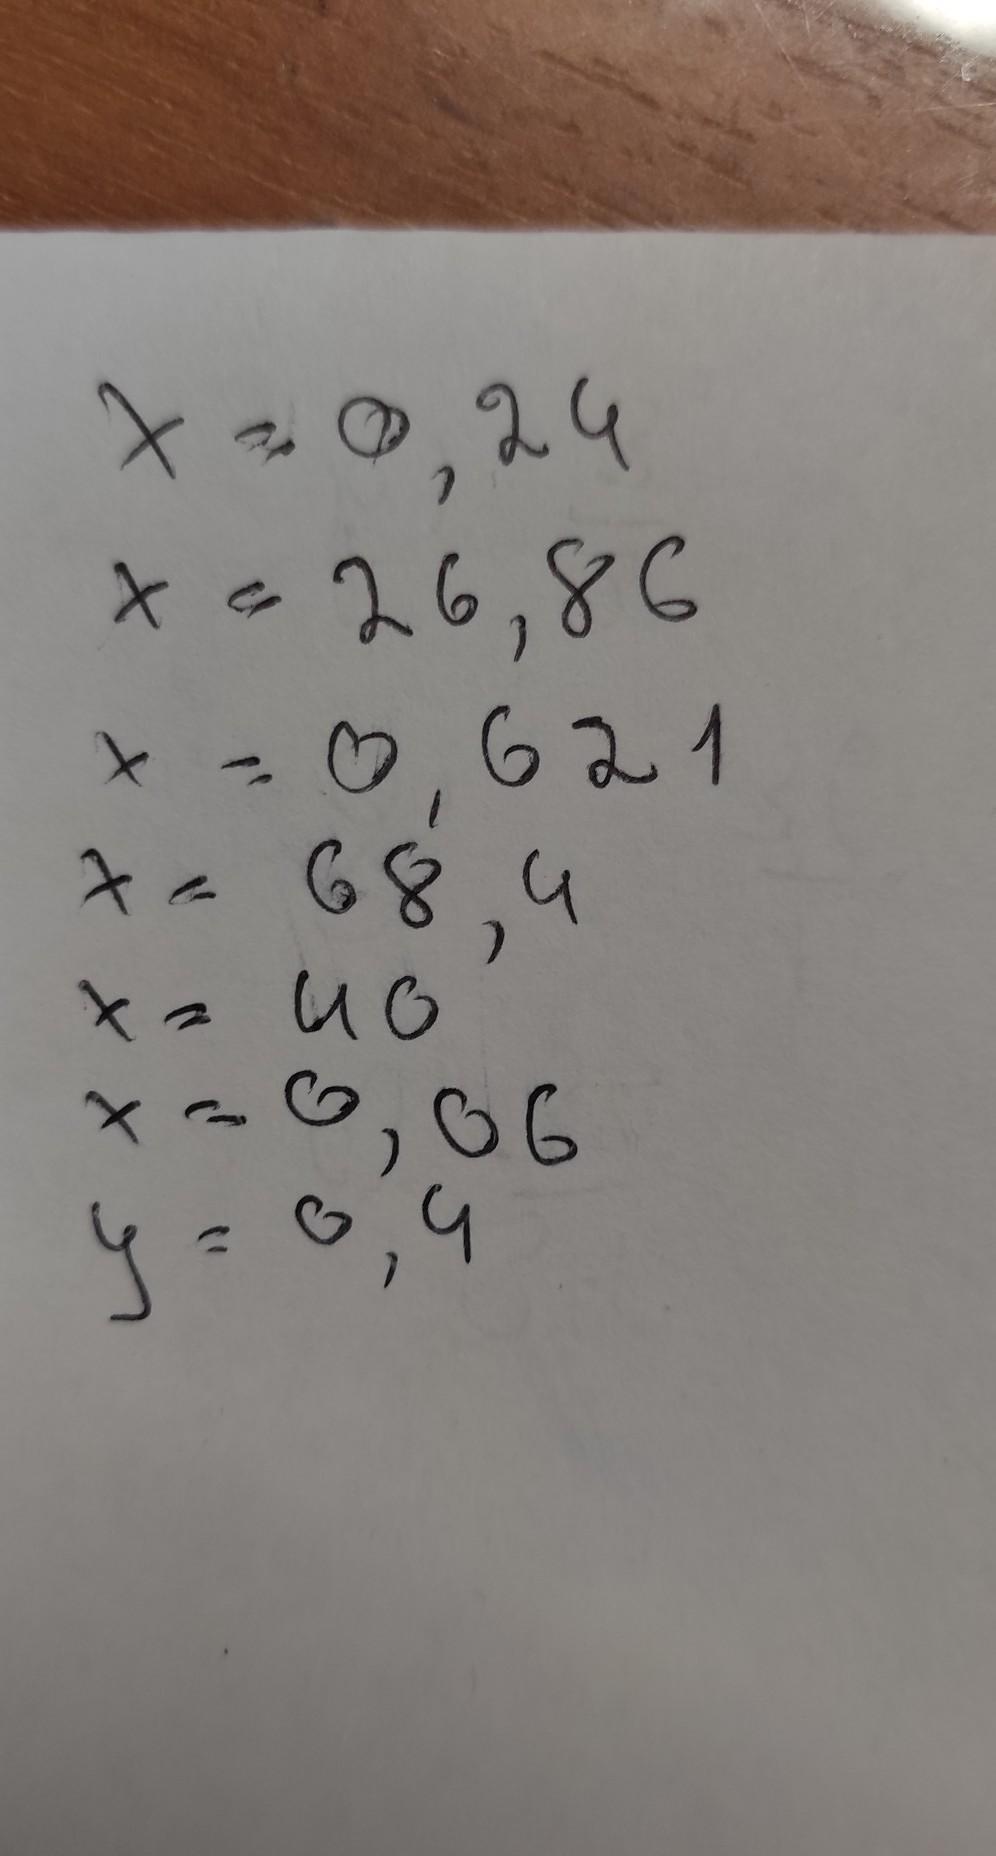 x = 0,24
x = 26,86
x = 0,621
x = 68,4
x = 40
x = 0,06
y = 0,4